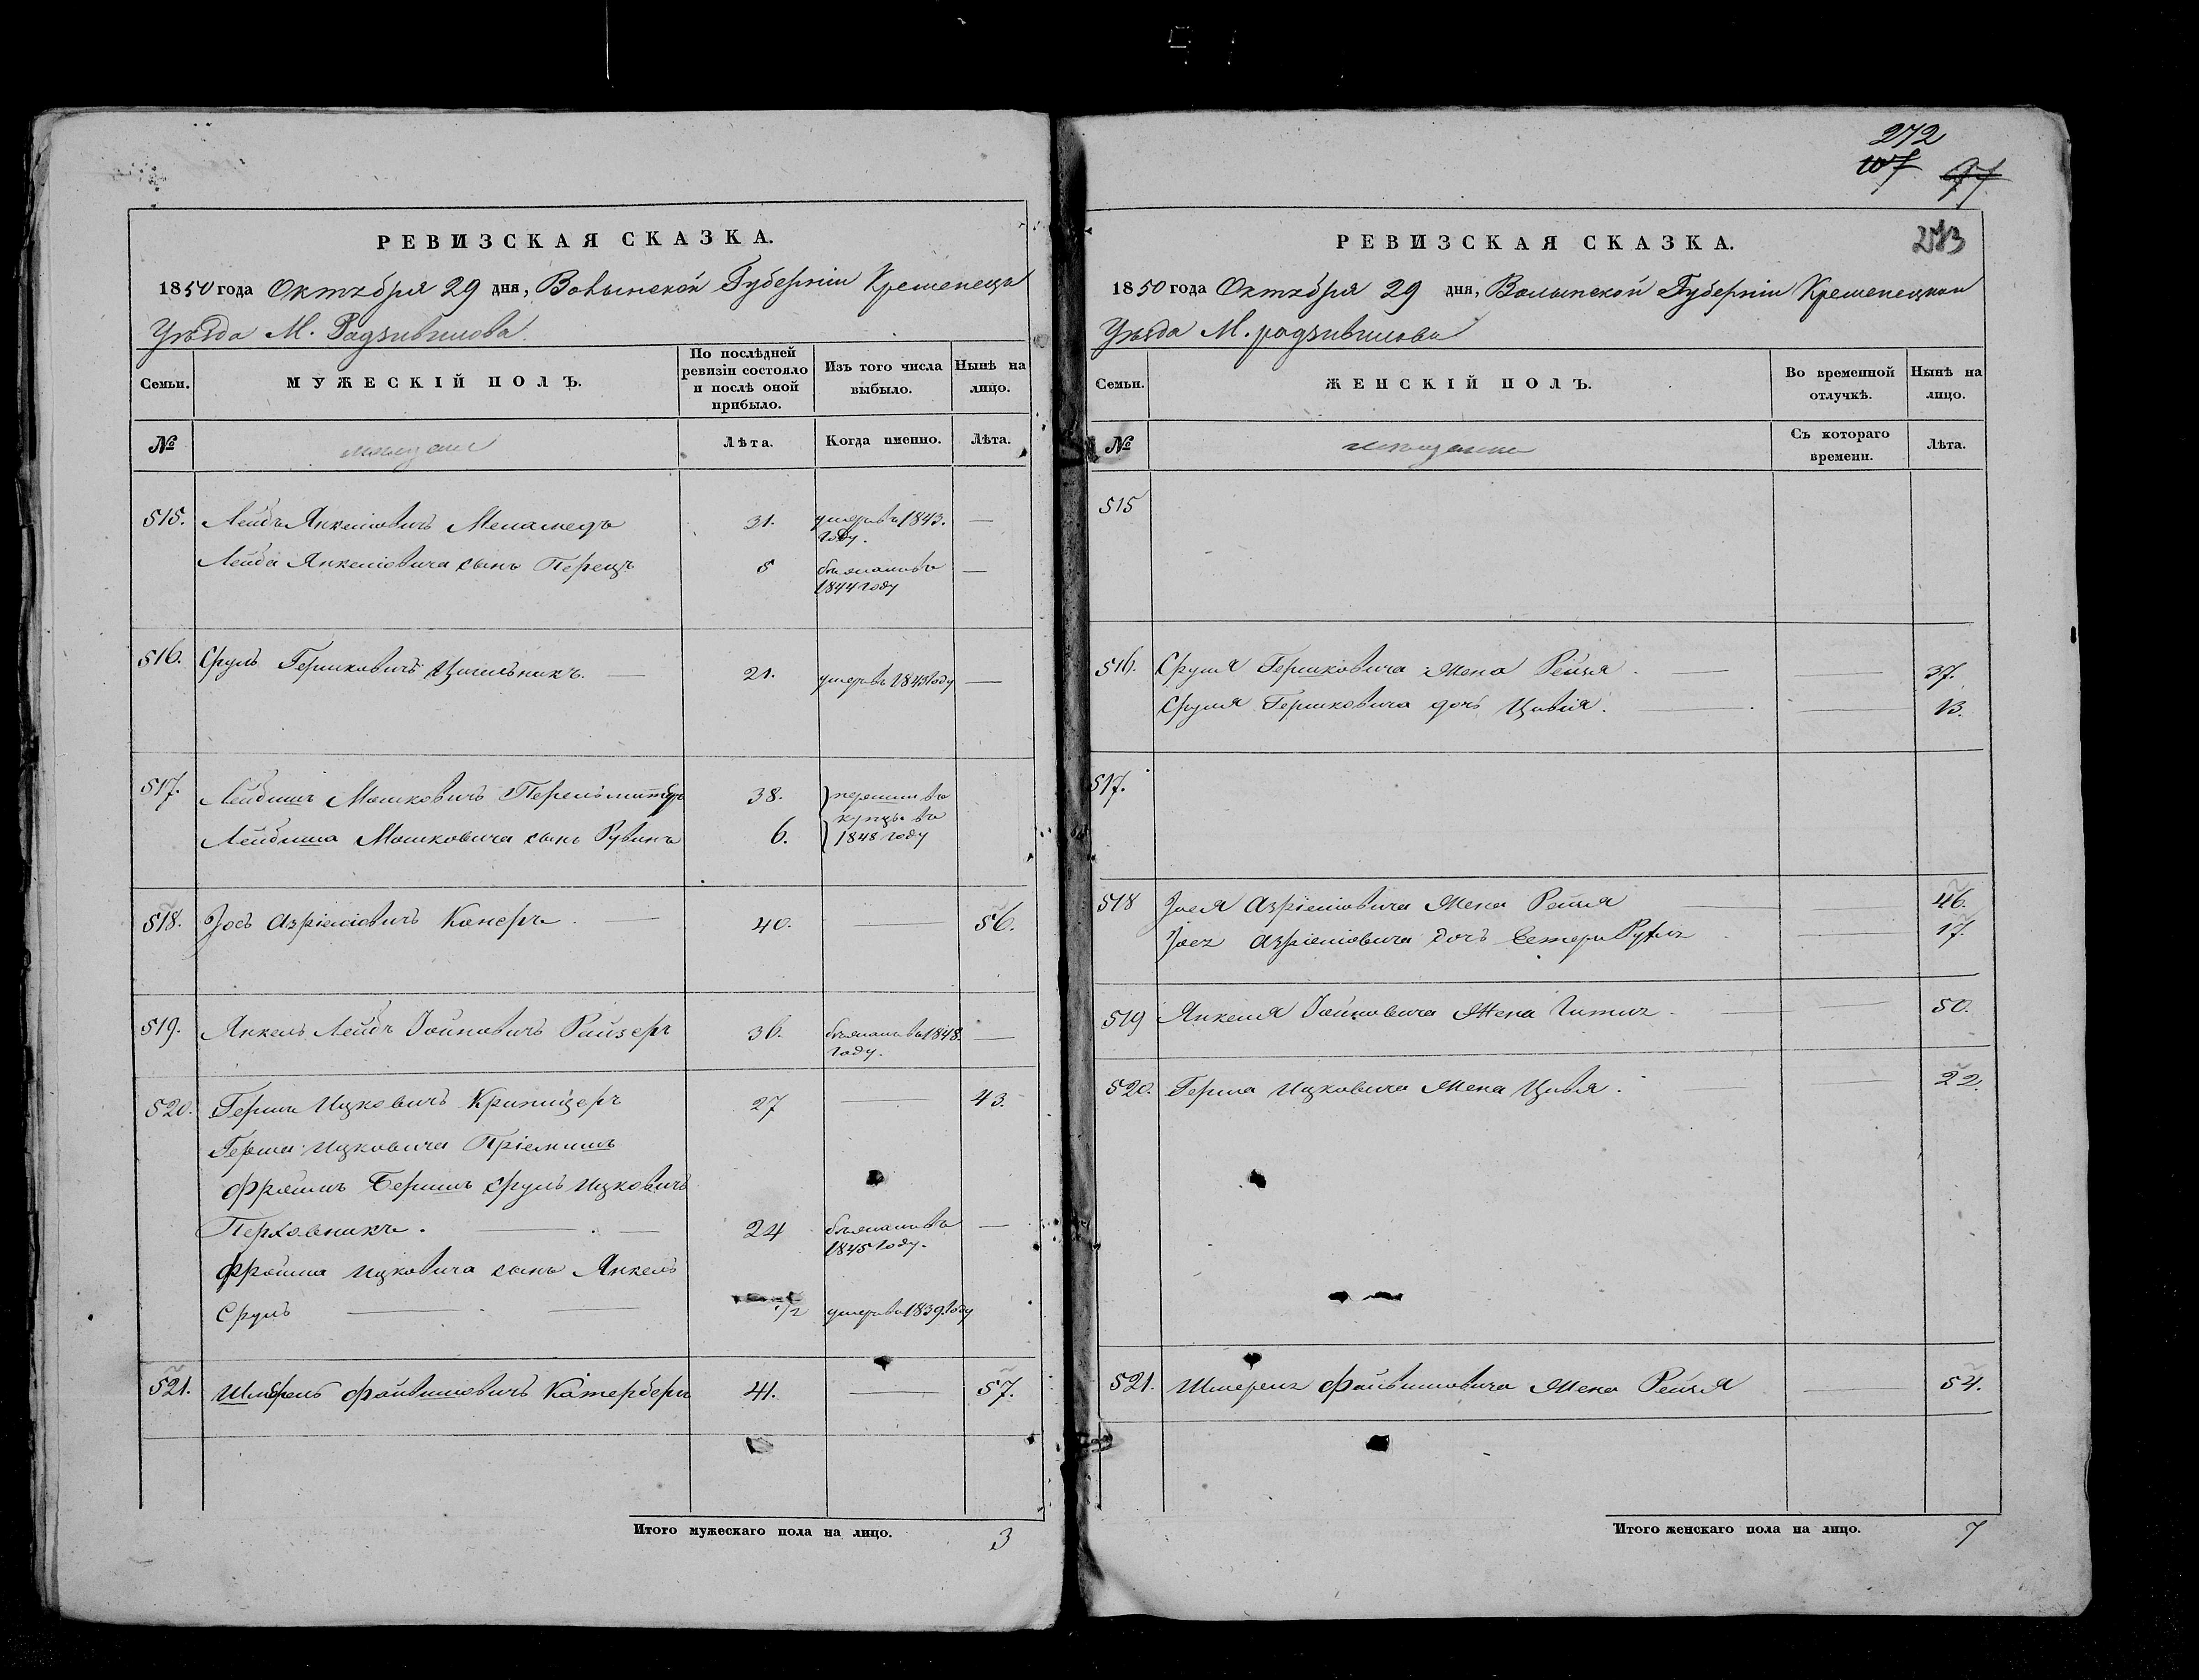 РЕВИЗСКАЯ СКАЗКА.
1850 года Октября 29 дня, Волынской Губерніи Кременецкаго
Уѣзда М. Радзивилова.
Семьи.
МУЖЕСКІЙ ПОЛЪ.
По послѣдней ревизіи состояло и послѣ оной прибыло.
Изъ того числа выбыло.
Нынѣ на лицо.
№
мѣщане
Лѣта.
Когда именно.
Лѣта.
515. Лейба Янкелiовичъ Меламедъ 31. умеръ въ 1843. —
году.
Лейби Янкелiовича сынъ Перецъ 8 бѣжалъ въ —
1844 году
516. Сруль Гершковичъ — 21. умеръ въ 1843 году —
517. Лейбишъ Мошковичъ 38. перешли въ
купцы въ
Лейбиша Мошковича сынъ Рувинъ 6. 1848 году
518. Іось Азріелiовичъ Канеръ — 40. — 56.
519. Янкель Лейба Іойновичъ Райзеръ 36. бѣжалъ въ 1848. —
году.
520. Гершъ Ицковичъ Криницеръ 27 — 43.
Герша Ицковича Пріемышъ
Фроимъ Беришъ Сруль Ицковичъ
— — 24 бѣжалъ въ —
1845 году.
Фроима Ицковича сынъ Янкель
Сруль — — 1/2 умеръ въ 1839 году
521. Шмерель Файвишовичъ Катербергъ 41. — 57.
Итого мужескаго пола на лицо. 3
272
107 97
283
РЕВИЗСКАЯ СКАЗКА.
1850 года Октября 29 дня, Волынской Губерніи Кременецкаго
Уѣзда М. радзивилова
Семьи.
ЖЕНСКІЙ ПОЛЪ.
Во временной отлучкѣ.
Нынѣ на лицо.
№
мѣщанки
Съ котораго времени.
Лѣта.
515
516. Сруля Гершковича жена Рейзя — — 37.
Сруля Гершковича дочь Цивія. — — 13.
517.
518 Іося Азріелiовича жена Рейзя — — 46.
Іося Азріелiовича дочь — 17.
519 Янкеля Іойновича жена Гитля — — 50.
520. Герша Ицковича жена Цивя. — — 22.
521. Шмереля Файвишовича жена Рейзя — 54.
Итого женскаго пола на лицо. 7